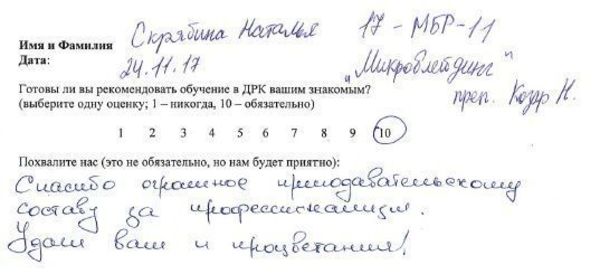 Имя и Фамилия Скрябина Наталья 17-МБР-11
Дата: 24.11.17 "Микроблейдинг"
преп. Козар Н.
Готовы ли вы рекомендовать обучение в ДРК вашим знакомым?
(выберите одну оценку; 1 – никогда, 10 – обязательно)
1 2 3 4 5 6 7 8 9 10
Похвалите нас (это не обязательно, но нам будет приятно):
Спасибо огромное преподавательскому
составу за профессионализм.
Удачи вам и процветания!